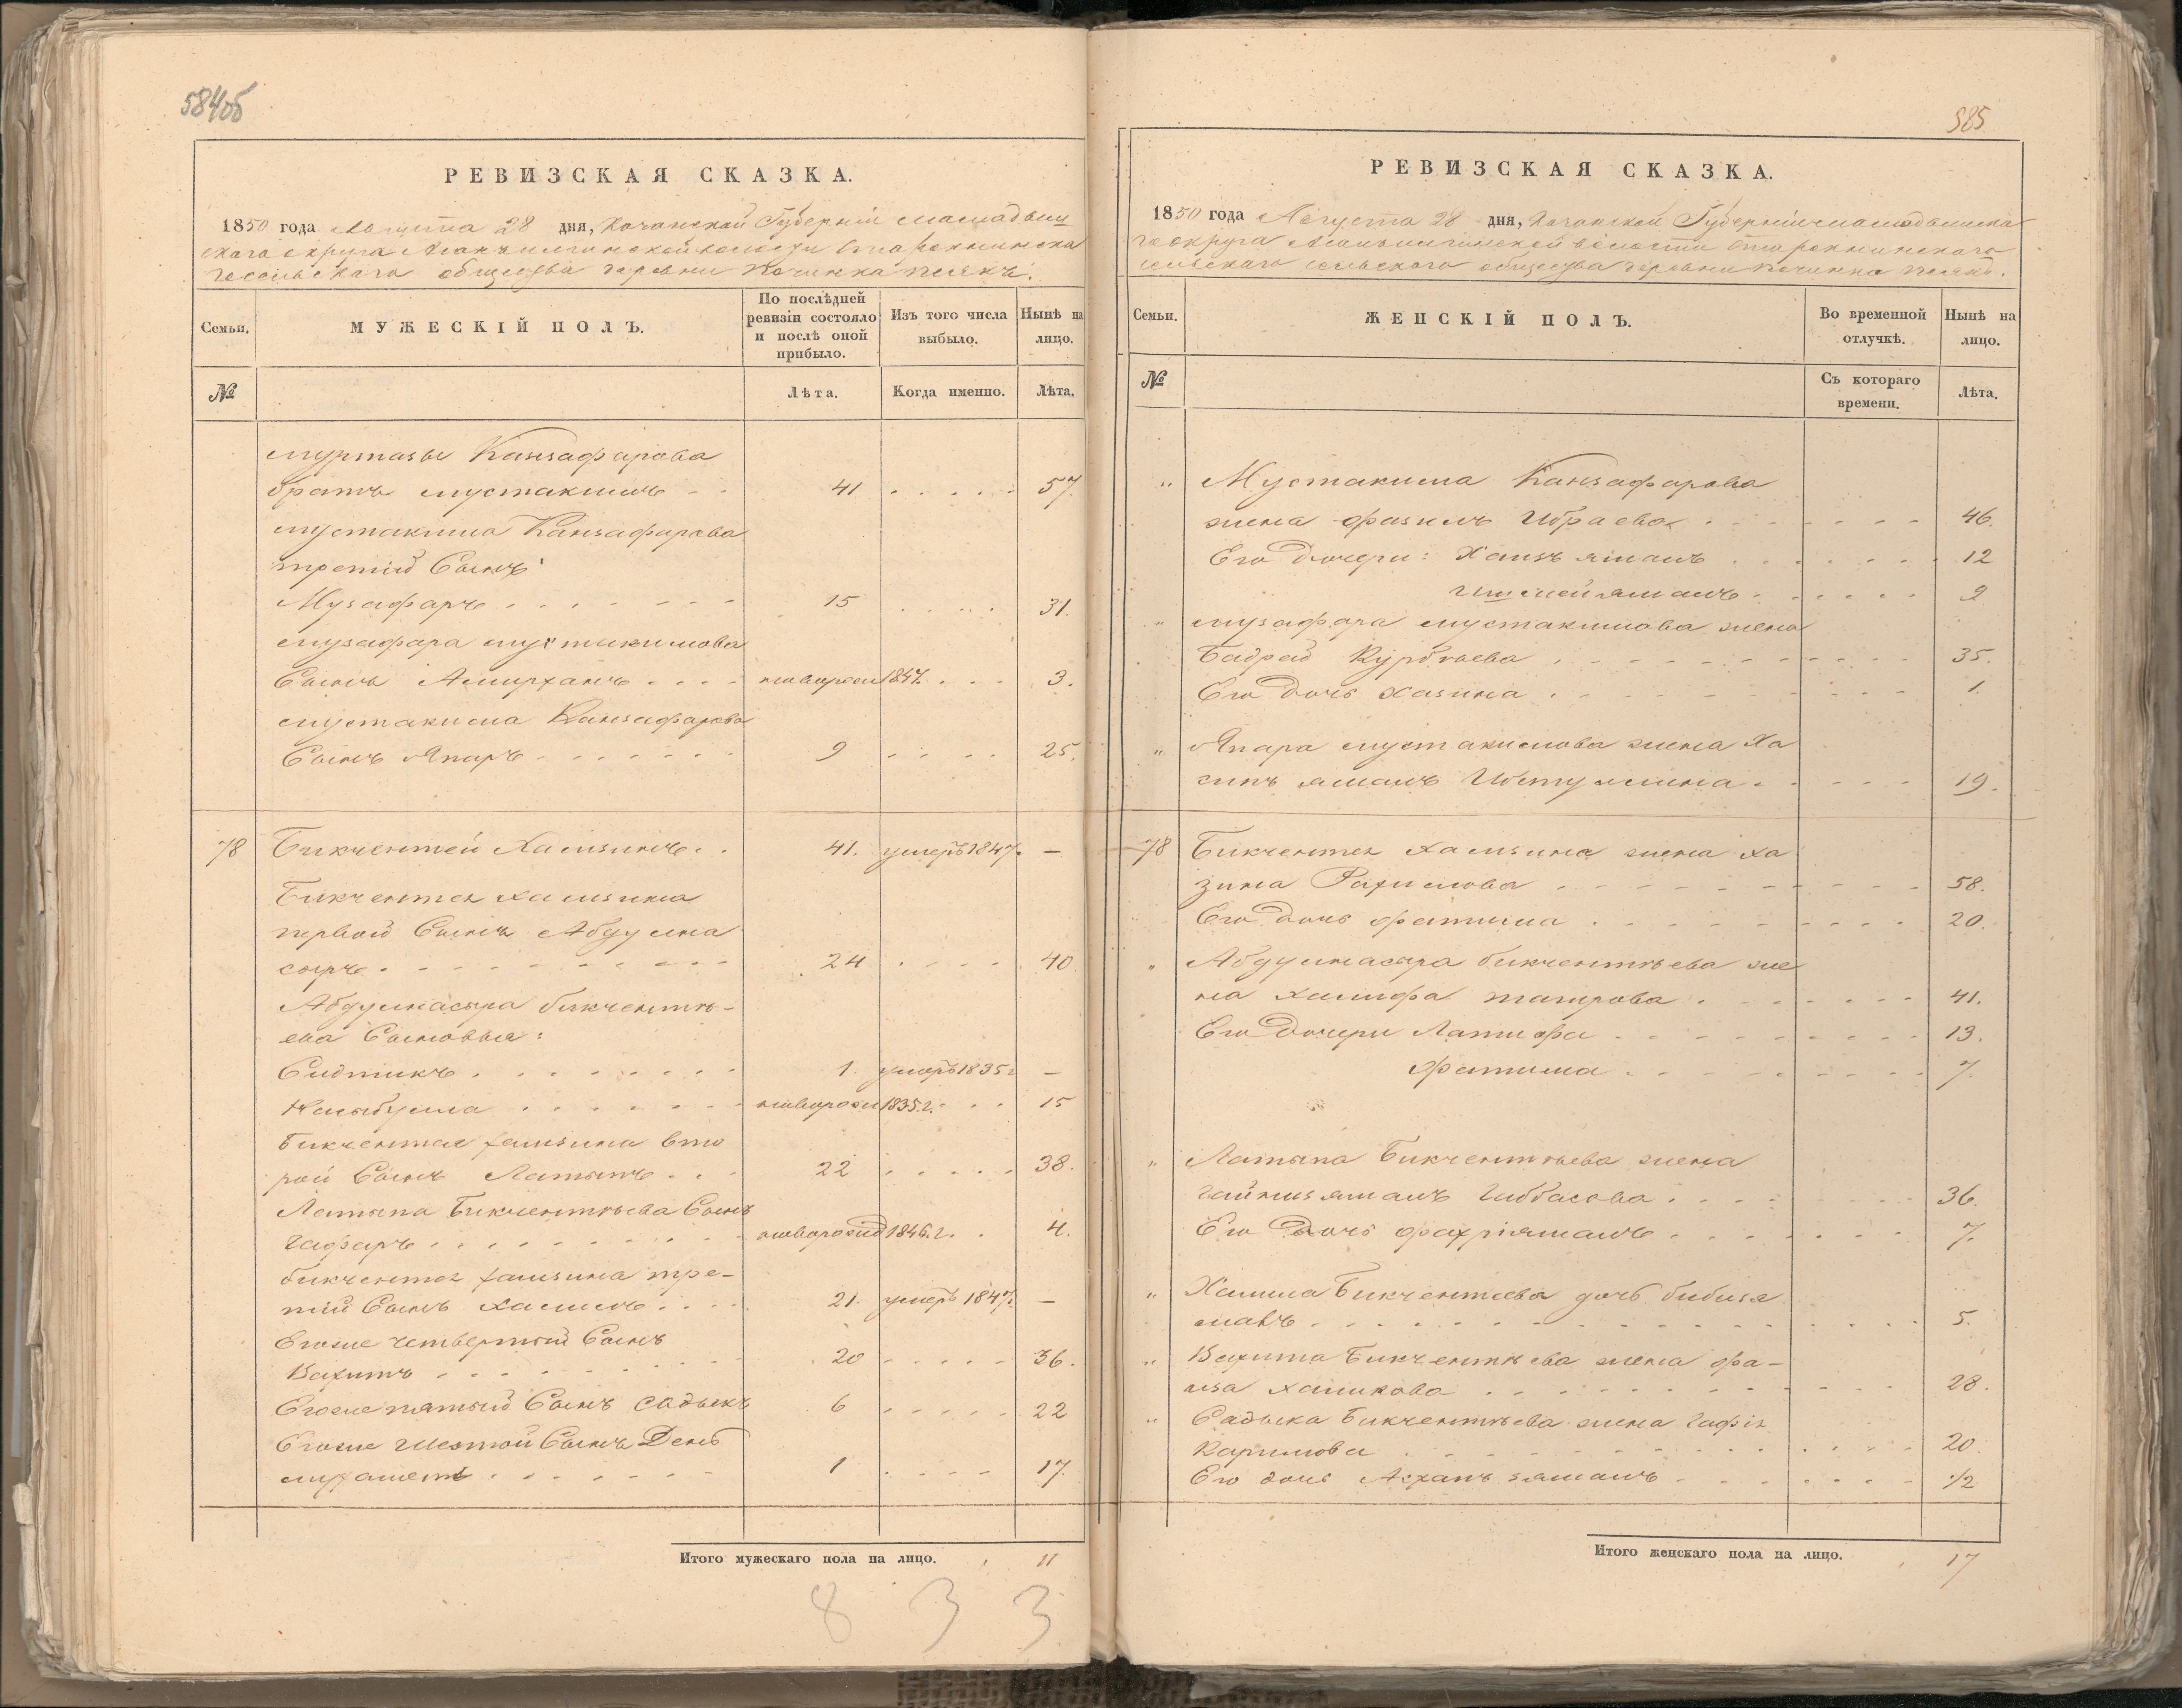 584об
РЕВИЗСКАЯ СКАЗКА.
1850 года Августа 28 дня, Казанской Губернiи Мамадыш
скаго округа волости Старокнинска
го сельскаго общества деревни Починка
Семьи.
МУЖЕСКІЙ ПОЛЪ.
По послѣдней ревизіи состояло и послѣ оной прибыло.
Изъ того числа выбыло.
Нынѣ на лицо.
№
Лѣта.
Когда именно.
Лѣта.
Муртазы Канзафарова
братъ Мустакимъ 41 57.
Мустакима Канзафарова
третiй Сынъ
Музафаръ 15 31.
Музафара Мустакимова
Сынъ Амирханъ новорожд 1847. 3.
Мустакима Канзафарова
Сынъ Япаръ 9 25.
78 Бикчентей Хамзинъ 41. умеръ 1847. —
Бикчентея Хамзина
первой Сынъ Абдулна
сыръ 24 40
Абдулнасыра бикчентѣ-
ева Сыновья:
Сидтикъ 1. умеръ 1835 г —
новорожд 1835.г. 15
Бикчентея хамзина вто
рой Сынъ Латыпъ 22 38.
Латыпа Бикчентѣева Сынъ
Гафаръ новорожд 1846.г. 4.
бикчентея хамзина тре-
тiй Сынъ Халимъ 21. умеръ 1847г —
Егоже четвертый Сынъ
Вахитъ 20 36.
Егоже пятый Сынъ Садыкъ 6 22
Егоже Шестой Сынъ Денъ
мухаметъ 1 17.
Итого мужескаго пола на лицо. 11
8 3 3
585
РЕВИЗСКАЯ СКАЗКА.
1850 года Августа 28 дня, Казанской Губернiи Мамадышска
го округа волости Старокнинскаго
сельскаго сельскаго общества деревни Починка
Семьи.
ЖЕНСКІЙ ПОЛЪ.
Во временной отлучкѣ.
Нынѣ на лицо.
№
Съ котораго времени.
Лѣта.
„ Мустакима Канзафарова
жена Фазиль Ибраева 46.
Его Дочери: Ханзъямаль 12
9
„ Музафара Мустакимова жена
Бадрад Курбаева 35.
Его Дочь Хазина 1.
„ Япара Мустакимова жена Ха
19.
78 Бикчентея Хамзина жена Ха
зина Рахимова 58.
Его Дочь Фатима 20.
„ Абдулнасыра бикчентѣева же
на халифа таирова 41.
Его Дочери Латифа 13.
Фатима 7.
„ Латыпа Бикчентѣева жена
Гайнизямаль Гиббасова 36.
Его Дочь Фахріямаль 7.
„ Халима Бикчентеева дочь бибизя
маль 5.
„ Вахита Бикчентѣева жена Фа-
иза халикова 28.
„ Садыка Бикчентѣева жена Гафiя
Каримова 20.
Его дочь Асханъ зямаль 1/2
Итого женскаго пола на лицо. 17